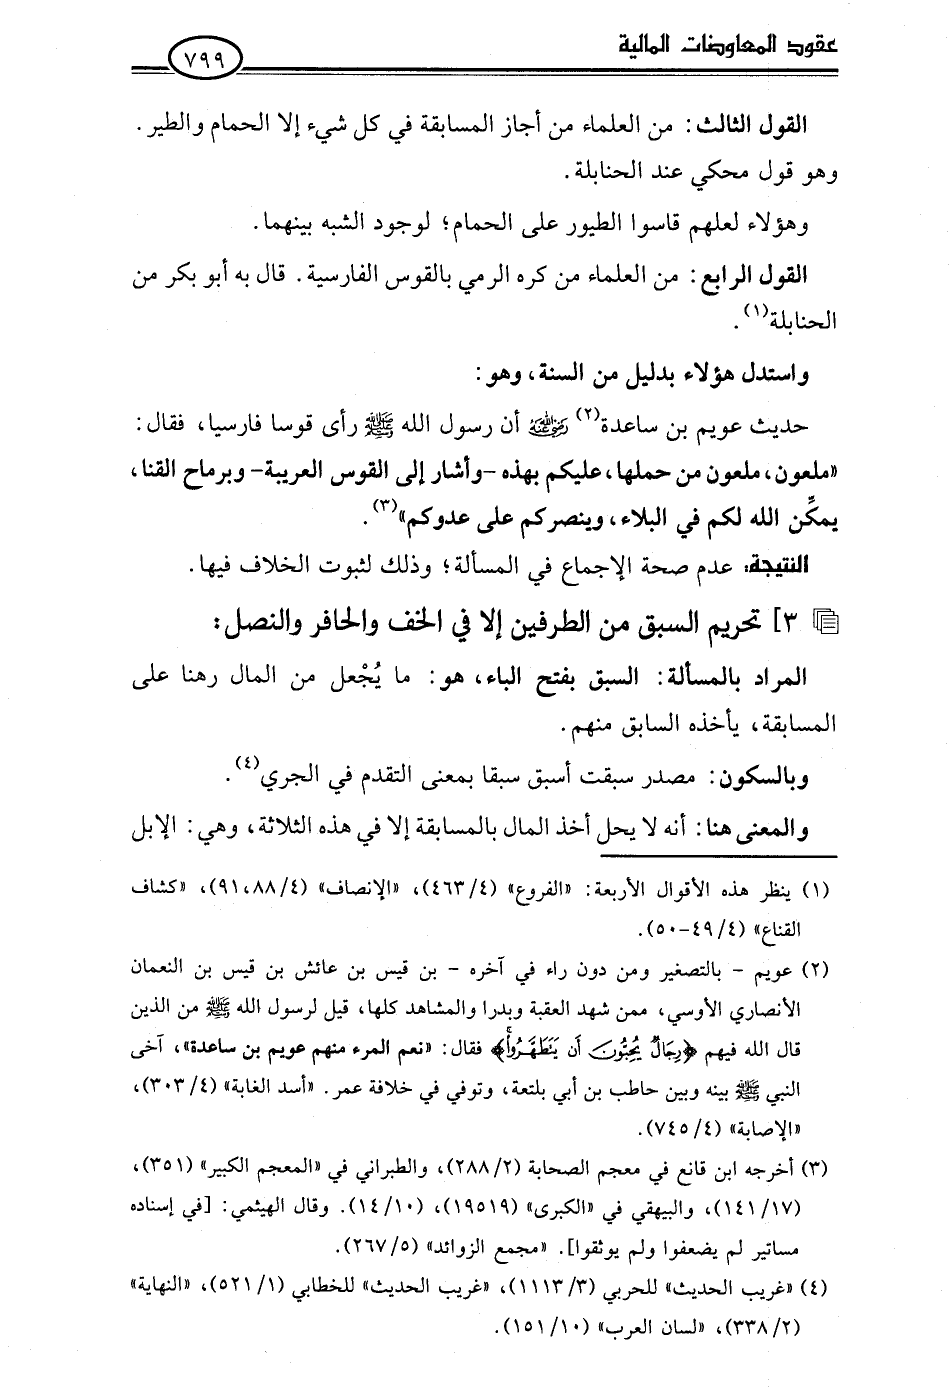 عقود المعاوضات المالية
٧٩٩
القول الثالث: من العلماء من أجاز المسابقة في كل شيء إلا الحمام والطير.
وهو قول محكي عند الحنابلة.
وهؤلاء لعلهم قاسوا الطيور على الحمام؛ لوجود الشبه بينهما.
القول الرابع: من العلماء من كره الرمي بالقوس الفارسية. قال به أبو بكر من
الحنابلة(١).
واستدل هؤلاء بدليل من السنة، وهو:
حديث عويم بن ساعدة(٢) رضي الله عنه أن رسول الله ﷺ رأى قوسا فارسيا، فقال:
«ملعون، ملعون من حملها، عليكم بهذه -وأشار إلى القوس العربية- وبرماح القنا،
يمكِّن الله لكم في البلاء، وينصركم على عدوكم»(٣).
النتيجة: عدم صحة الإجماع في المسألة؛ وذلك لثبوت الخلاف فيها.
٣] تحريم السبق من الطرفين إلا في الخف والحافر والنصل:
المراد بالمسألة: السبق بفتح الباء، هو: ما يُجْعل من المال رهنا على
المسابقة، يأخذه السابق منهم.
وبالسكون: مصدر سبقت أسبق سبقا بمعنى التقدم في الجري(٤).
والمعنى هنا: أنه لا يحل أخذ المال بالمسابقة إلا في هذه الثلاثة، وهي: الإبل
(١) ينظر هذه الأقوال الأربعة: «الفروع» (٤/ ٤٦٣)، «الإنصاف» (٤/ ٨٨، ٩١)، «كشاف
القناع» (٤/ ٤٩-٥٠).
(٢) عويم - بالتصغير ومن دون راء في آخره - بن قيس بن عائش بن قيس بن النعمان
الأنصاري الأوسي، ممن شهد العقبة وبدرا والمشاهد كلها، قيل لرسول الله ﷺ من الذين
قال الله فيهم ﴿رِجَالٌ يُحِبُّونَ أَن يَتَطَهَّرُواْ﴾ فقال: «نعم المرء منهم عويم بن ساعدة»، آخى
النبي ﷺ بينه وبين حاطب بن أبي بلتعة، وتوفي في خلافة عمر. «أسد الغابة» (٤/ ٣٠٣)،
«الإصابة» (٤/ ٧٤٥).
(٣) أخرجه ابن قانع في معجم الصحابة (٢/ ٢٨٨)، والطبراني في «المعجم الكبير» (٣٥١)،
(١٧/ ١٤١)، والبيهقي في «الكبرى» (١٩٥١٩)، (١٠/ ١٤). وقال الهيثمي: [في إسناده
مساتير لم يضعفوا ولم يوثقوا]. «مجمع الزوائد» (٥/ ٢٦٧).
(٤) «غريب الحديث» للحربي (٣/ ١١١٣)، «غريب الحديث» للخطابي (١/ ٥٢١)، «النهاية»
(٢/ ٣٣٨)، «لسان العرب» (١٠/ ١٥١).